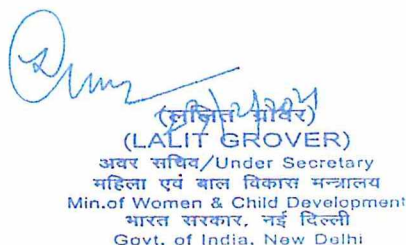 (ललित ग्रोवर)
(LALIT GROVER)
अवर सचिव/Under Secretary
महिला एवं बाल विकास मन्त्रालय
Min.of Women & Child Development
भारत सरकार, नई दिल्ली
Govt. of India, New Delhi